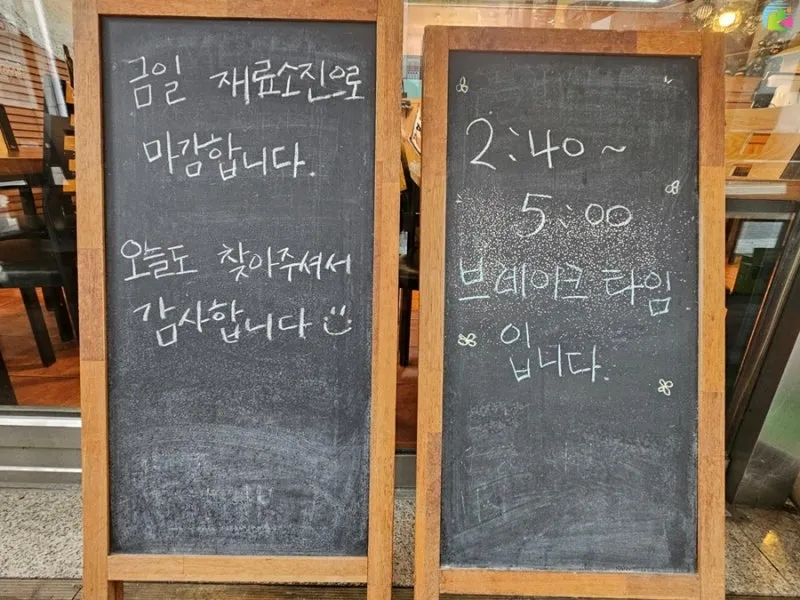 금일 재료소진으로
마감합니다.
오늘도 찾아주셔서
감사합니다
2:40~
5:00
브레이크 타임
입니다.